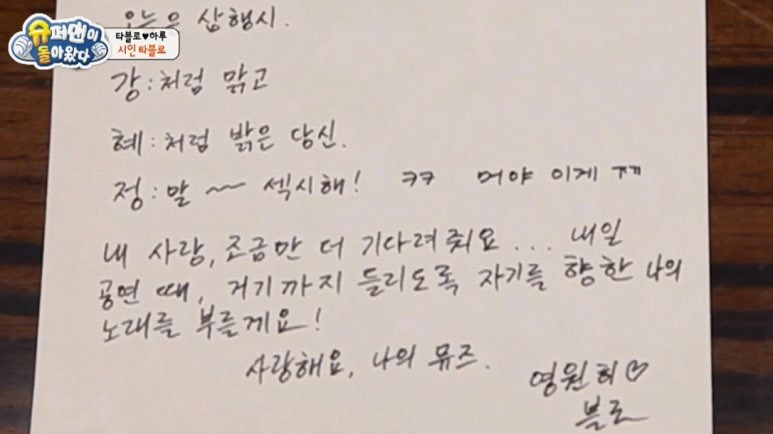 슈퍼맨이
돌아왔다
타블로♥하루
시인 타블로
오늘은 삼행시.
강:처럼 맑고
혜:처럼 밝은 당신.
정:말 ~ 섹시해! ㅋㅋ 머야 이게 ㅠㅠ
내 사랑, 조금만 더 기다려줘요... 내일
공연 때, 거기까지 들리도록 자기를 향한 나의
노래를 부를게요!
사랑해요, 나의 뮤즈.
영원히♡
블로